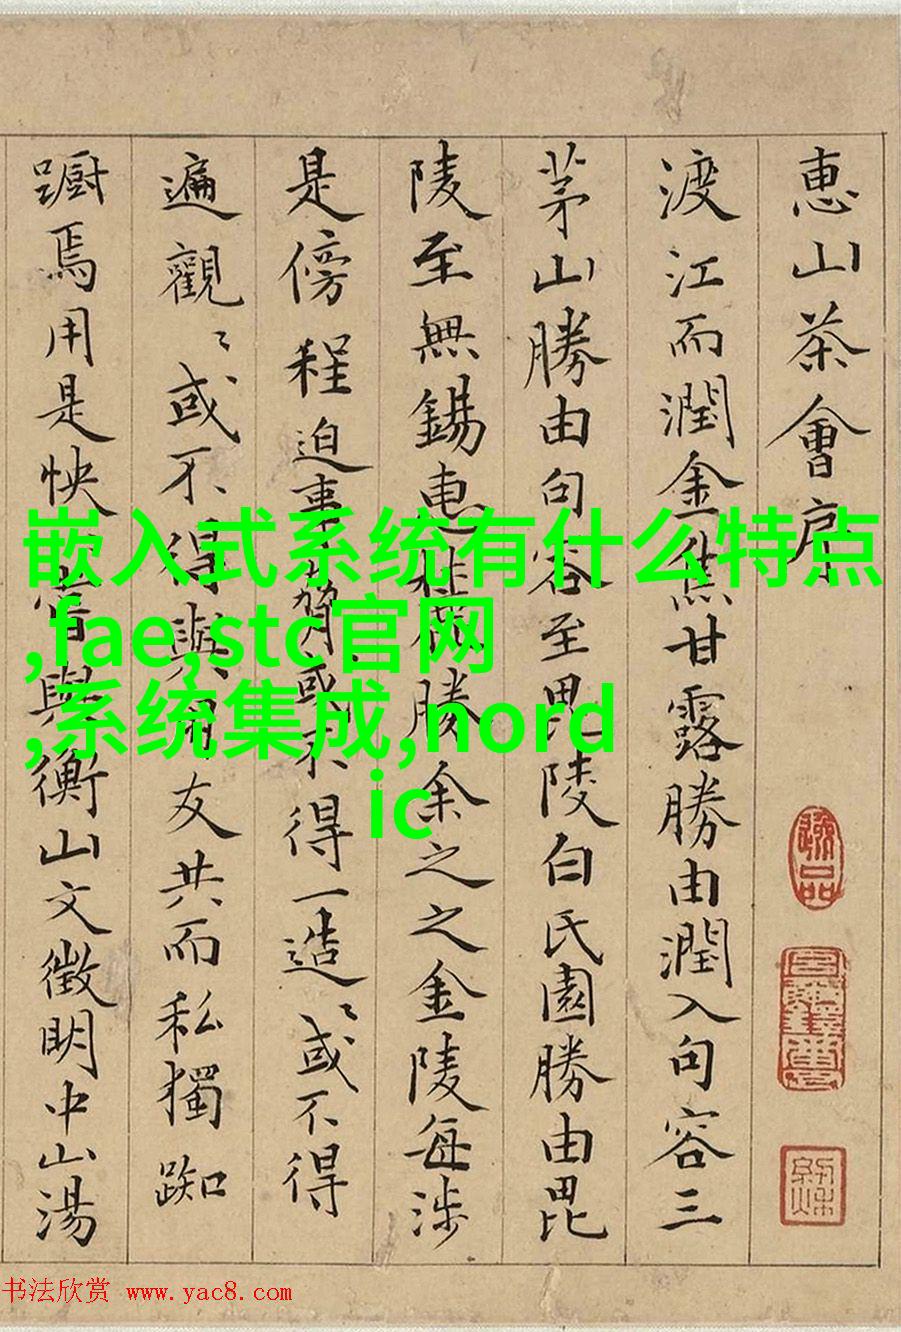 惠山茶會序
渡江而潤金焦甘露勝由潤入句容三
茅山勝由句容至毘陵白氏園勝由毘
陵至無錫惠勝余之之金陵每涉
是傍程迫事不得一造〻或不得
遍觀〻或不得與友共而私獨踟
蹰焉用是怏嘗與衡山文徵明中山湯
嵌入式系统有什么特点
,fae,stc官网
,系统集成,nord
ic
書法欣赏 www.yac8.com